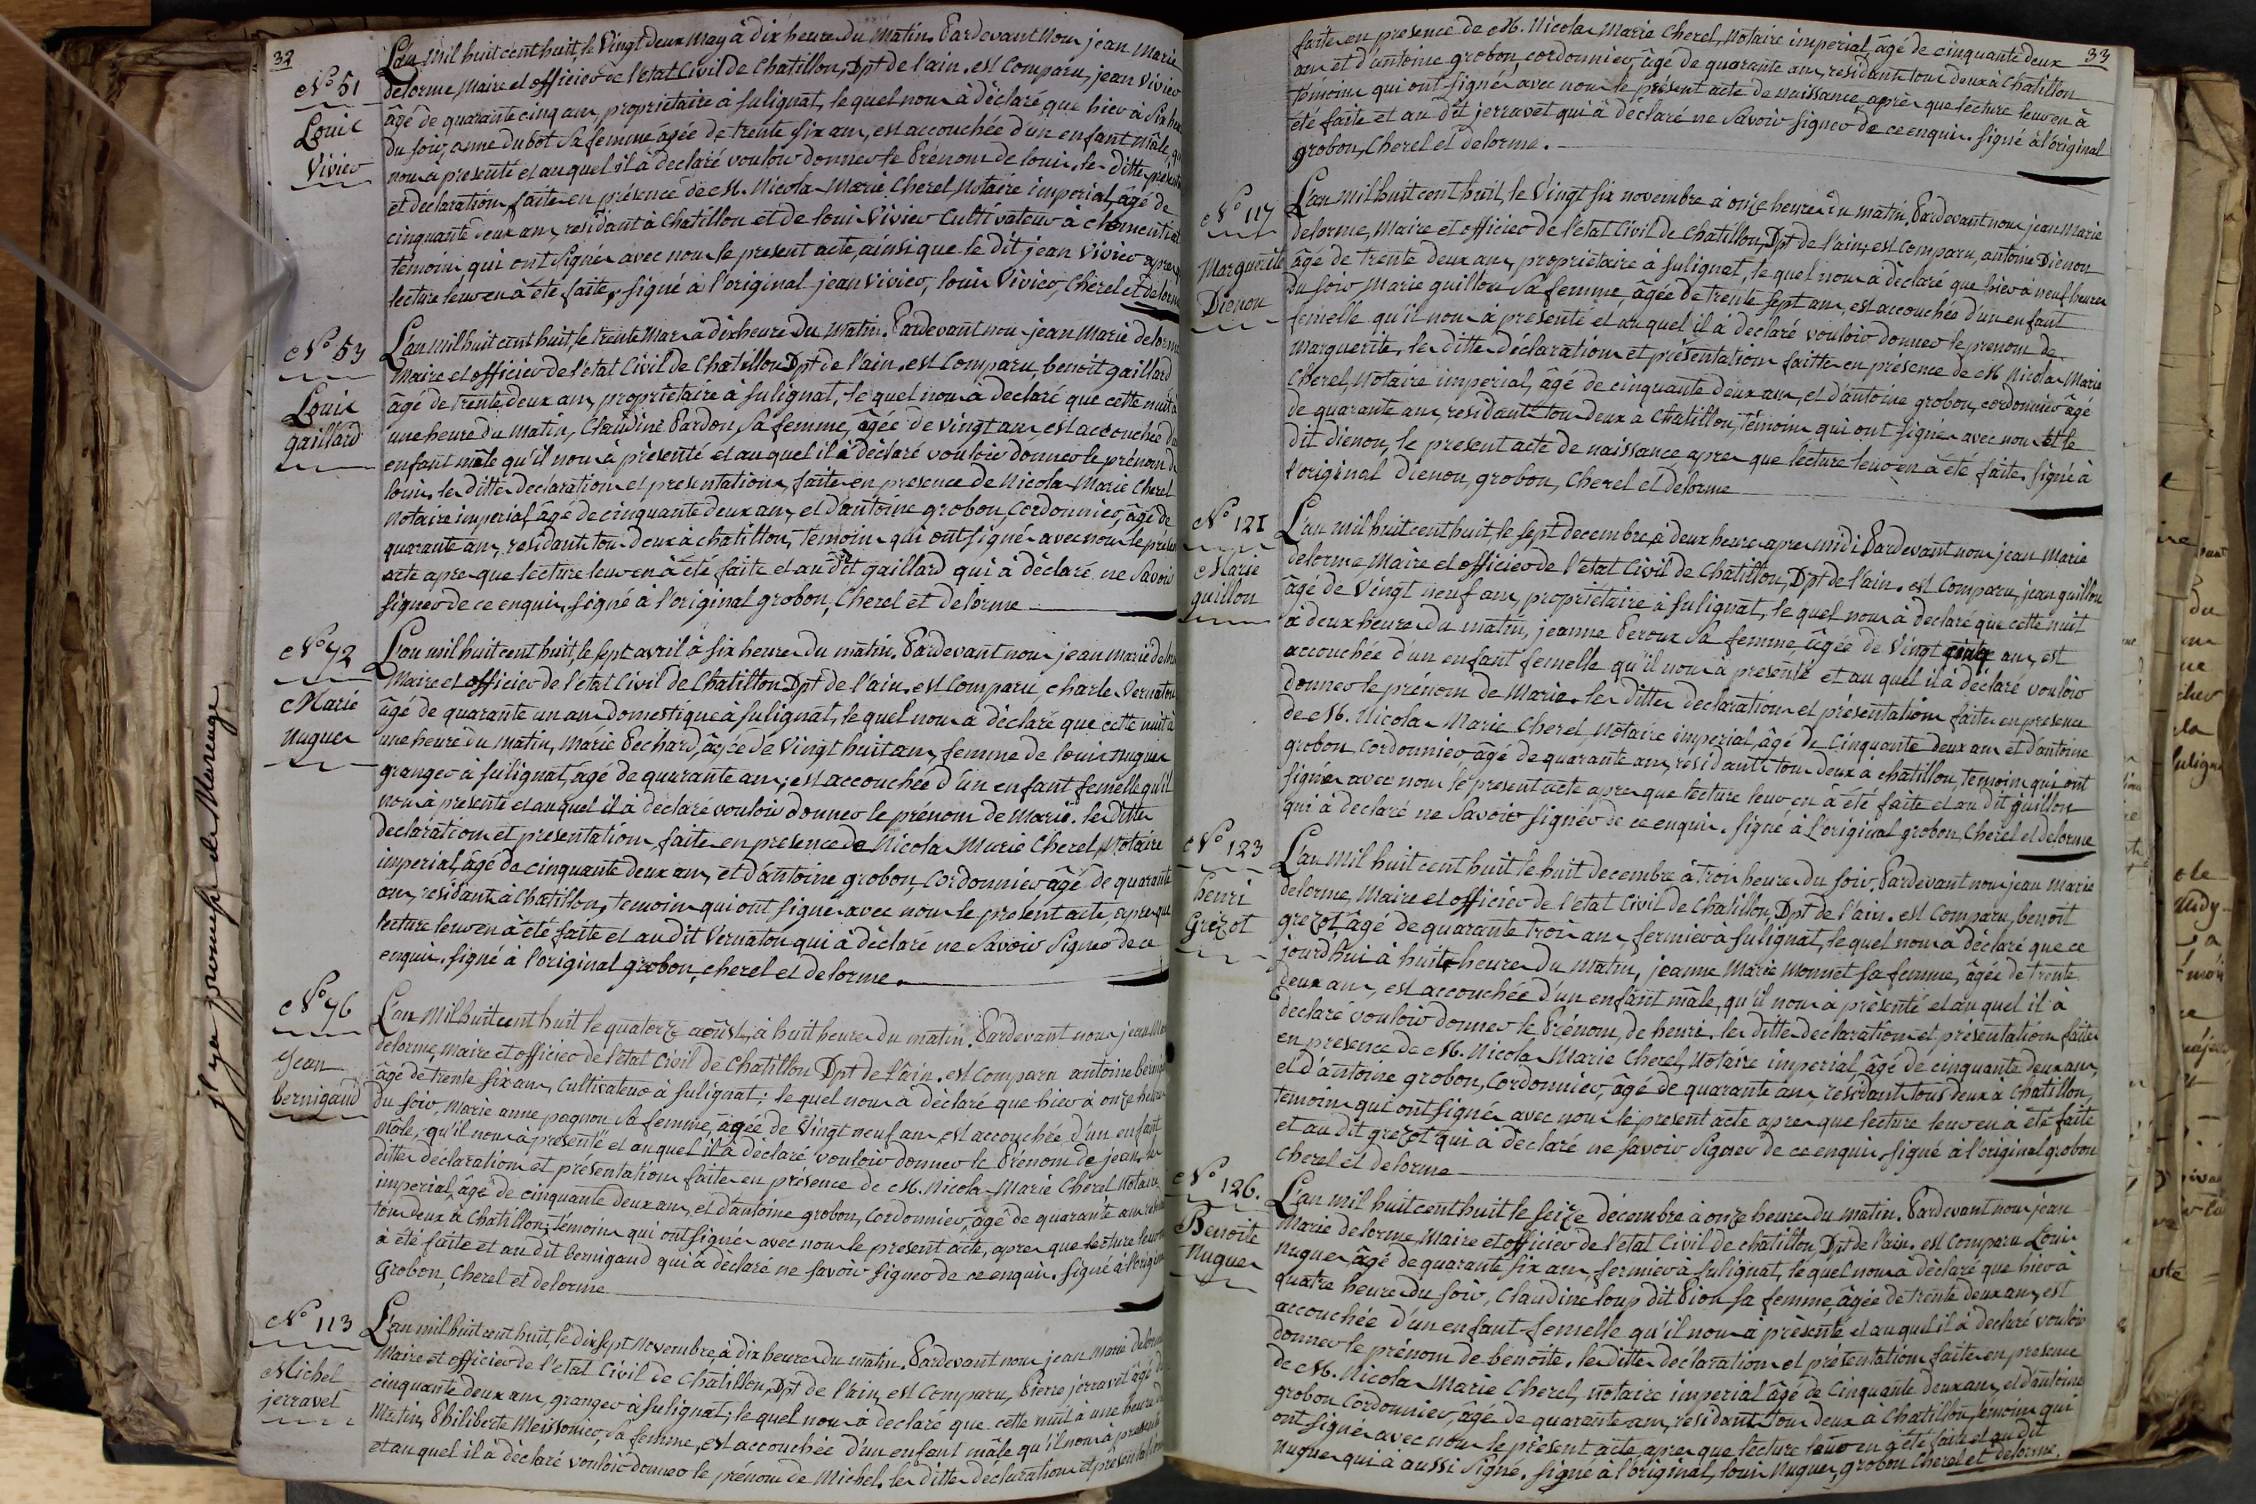 32
L'an mil huit cent huit, le Vingt deux may à dix heures du matin, Pardevant Nous jean Marie
delorme, Maire et officier de l'etat Civil de Chatillon, Dpt de l'ain. est Comparu, jean Vivier
âgé de quarante cinq ans, proprietaire à sulignat, le quel nous à déclaré que hier à six heu
du soir, anne dubot sa femme, âgée de trente six ans, est accouchée d'un enfant Mâle, qu
nous à presenté et au quel il à declaré vouloir donner le Prénom de louis, les dittes présent
et declaration, faite en présence de M. Nicolas Marie Cherel, Notaire imperial, âgé de
cinquante deux ans, residant à Chatillon et de louis Vivier Cultivateur à
témoins qui ont signés avec nous le present acte, ainsi que le dit jean Vivier apres
lecture leur en à été faite, signé à l'original jean Vivier, louis Vivier, Cherel et delorm
N° 51
Louis
Vivier
L'an mil huit cent huit, le trente Mars à dix heures du Matin. Pardevant nous jean Marie delorme
Maire et officier de l'etat Civil de Chatillon, Dpt de l'ain. est Comparu, benoit gaillard
âgé de trente deux ans, proprietaire à sulignat, le quel nous à déclaré que cette nuit à
une heure du matin, Claudine Pardon, sa femme, âgée de vingt ans, est accouchée d'un
enfant mâle qu'il nous à présenté et au quel il à déclaré vouloir donner le prénom de
louis, les dittes declaration et presentation, faites en presence de Nicolas Marie Cherel
Notaire imperial âgé de cinquante deux ans, et d'antoine grobon, Cordonnier, âgé de
quarante ans, residant tous deux à chatillon, témoins qui ont signé avec nous le présen
acte apres que lecture leur en à été faite et au dit gaillard qui à déclaré ne savoir
signer de ce enquis, signé à l'original grobon, Cherel et delorme
N° 53
Louis
gaillard
L'an mil huit cent huit, le sept avril à six heures du matin. Pardevant nous jean marie delor
Maire et officier de l'etat Civil de Chatillon Dpt de l'ain, est Comparu charles Vernaton
âgé de quarante un ans domestique à sulignat, le quel nous à déclaré que cette nuit à
une heure du matin, Marie Pechard, âgée de Vingt huit ans, femme de louis nugues
granger à sulignat, âgé de quarante ans, est accouchée d'un enfant femelle qu'il
nous à presenté et au quel il à déclaré vouloir donner le prénom de Marie. les dittes
declaration et presentation, faite en presence de Nicolas Marie Cherel, Notaire
imperial, âgé de cinquante deux ans, et d'antoine grobon, Cordonnier âgé de quarante
ans, residant à Chatillon, temoins qui ont signé avec nous le present acte, apres que
lecture leur en à été faite et au dit Vernaton qui à déclaré ne savoir signer de ce
enquis. signé à l'original grobon, cherel et delorme.
N° 72
Marie
nugues
L'an mil huit cent huit le quatorze août, à huit heures du matin. Pardevant nous, jean Mar
delorme, Maire et officier de l'etat Civil de Chatillon Dpt de l'ain. est Comparu antoine berni
âgé de trente six ans, cultivateur à sulignat; le quel nous à déclaré que hier à onze heures
du soir, Marie anne pagnon sa femme, âgée de Vingt neuf ans, est accouchée d'un enfant
male, qu'il nous à presenté et au quel il à déclaré vouloir donner le Prénom de jean, les
dittes déclaration et présentation faites en présence de M. Nicolas Marie Cherel Notaire
imperial, âgé de cinquante deux ans, et d'antoine grobon, Cordonnier, âgé de quarante ans resid
tous deux à Chatillon, témoins qui ont signés avec nous le present acte, apres que lecture leur
à été faite et au dit bernigaud qui à déclaré ne savoir signer de ce enquis. signé à l'origin
Grobon, Cherel et delorme
N° 96
Jean
bernigaud
L'an mil huit cent huit, le dix sept Novembre, à dix heures du matin. Pardevant nous jean Marie delorme
Maire et officier de l'etat Civil de Chatillon, Dpt de l'ain, est Comparu, Pierre jerravet âgé de
cinquante deux ans, granger à sulignat; le quel nous à déclaré que cette nuit à une heure du
Matin, Philiberte Meissonier, sa femme, est accouchée d'un enfant mâle qu'il nous à presenté
et au quel il à déclaré vouloir donner le prénom de Michel, les dittes declaration et presentation
N° 113
Michel
jerravet
il y a promesse de Mareuge
33
faites en presence de M. Nicolas Marie Cherel, Notaire imperial, âgé de cinquante deux
ans et d'antoine grobon, cordonnier, âgé de quarante ans, residant tous deux à Chatillon
témoins qui ont signé avec nous le présent acte de naissance après que lecture leur en à
été faite et au dit jerravet qui à déclaré ne savoir signer de ce enquis. signé à l'original
grobon, Cherel et delorme.
L'an mil huit cent huit, le Vingt six novembre à onze heures du matin, Pardevant nous jean Marie
delorme, Maire et officier de l'etat Civil de Chatillon, Dpt de l'ain, est Comparu, antoine Dienon
âgé de trente deux ans, proprietaire à sulignat, le quel nous à déclaré que hier à neuf heures
du soir Marie guillon sa femme, âgée de trente sept ans, est accouchée d'un enfant
femelle qu'il nous à presenté et au quel il à declaré vouloir donner le prenom de
marguerite, les dittes déclaration et présentation faittes en présence de M Nicolas Marie
Cherel, Notaire imperial, âgé de cinquante deux ans, et d'antoine grobon, cordonnier âgé
de quarante ans, residant tous deux à Chatillon, témoins qui ont signés avec nous et le
dit dienon, le present acte de naissance, apres que lecture leur en à été faite. signé à
l'original Dienon, grobon, Cherel et delorme
N° 117
Marguerite
Dienon
L'an mil huit cent huit, le sept decembre à deux heures apres midi Pardevant nous jean Marie
delorme Maire et officier de l'etat Civil de Chatillon, Dpt de l'ain. est Comparu, jean guillon
âgé de Vingt neuf ans, proprietaire à sulignat, le quel nous à déclaré que cette nuit
à deux heures du matin, jeanne Peroux sa femme, âgée de Vingt cinq ans, est
accouchée d'un enfant femelle qu'il nous à présenté et au quel il à déclaré vouloir
donner le prénom de Marie. les dittes declaration et présentation faites en presence
de M. Nicolas Marie Cherel, Notaire imperial, âgé de Cinquante deux ans et d'antoine
grobon cordonnier âgé de quarante ans, residant tous deux à chatillon, temoins qui ont
signés avec nous le present acte apres que lecture leur en à été faite et au dit guillon
qui à declaré ne savoir signer de ce enquis. signé à l'original grobon, Cherel et delorme
N° 121
Marie
guillon
L'an mil huit cent huit le huit decembre à trois heures du soir. Pardevant nous jean Marie
delorme, Maire et officier de l'etat Civil de Chatillon, Dpt de l'ain. est Comparu, benoit
grezot, âgé de quarante trois ans fermier à sulignat, le quel nous à déclaré que ce
jourd'hui à huit heures du matin, jeanne Marie Monnet sa femme, âgée de trente
deux ans, est accouchée d'un enfant mâle, qu'il nous à présenté et au quel il à
déclaré vouloir donner le Prénom, de henri. les dittes declaration et présentation faites
en presence de M. Nicolas Marie Cherel, Notaire imperial, âgé de cinquante deux ans,
et d'antoine grobon, Cordonnier, âgé de quarante ans, résidant tous deux à Chatillon,
temoins qui ont signés avec nous le present acte apres que lecture leur en à été faite
et au dit grezot qui à déclaré ne savoir signer de ce enquis, signé à l'original grobon
Cherel et delorme
N° 123
henri
Grezot
L'an mil huit cent huit le seize décembre à onze heures du matin. Pardevant nous jean
Marie delorme, Maire et officier de l'etat Civil de chatillon, Dpt de l'ain. est Comparu Louis
nugues âgé de quarante six ans, fermier à sulignat, le quel nous à déclaré que hier à
quatre heures du soir, Claudine loup dit Pion sa femme, âgée de trente deux ans, est
accouchée d'un enfant femelle qu'il nous à présenté et au quel il à déclaré vouloir
donner le prénom de benoite. les dittes declaration et présentation faites en presence
de M. Nicolas Marie Cherel, notaire imperial âgé de Cinquante deux ans, et d'antoine
grobon Cordonnier, âgé de quarante ans, residant tous deux à Chatillon, témoins qui
ont signés avec nous le présent acte, apres que lecture leur en à été faite et au dit
nugues qui à aussi signé. signé à l'original, louis Nugues, grobon Cherel et delorme.
N° 126.
Benoite
Nugues